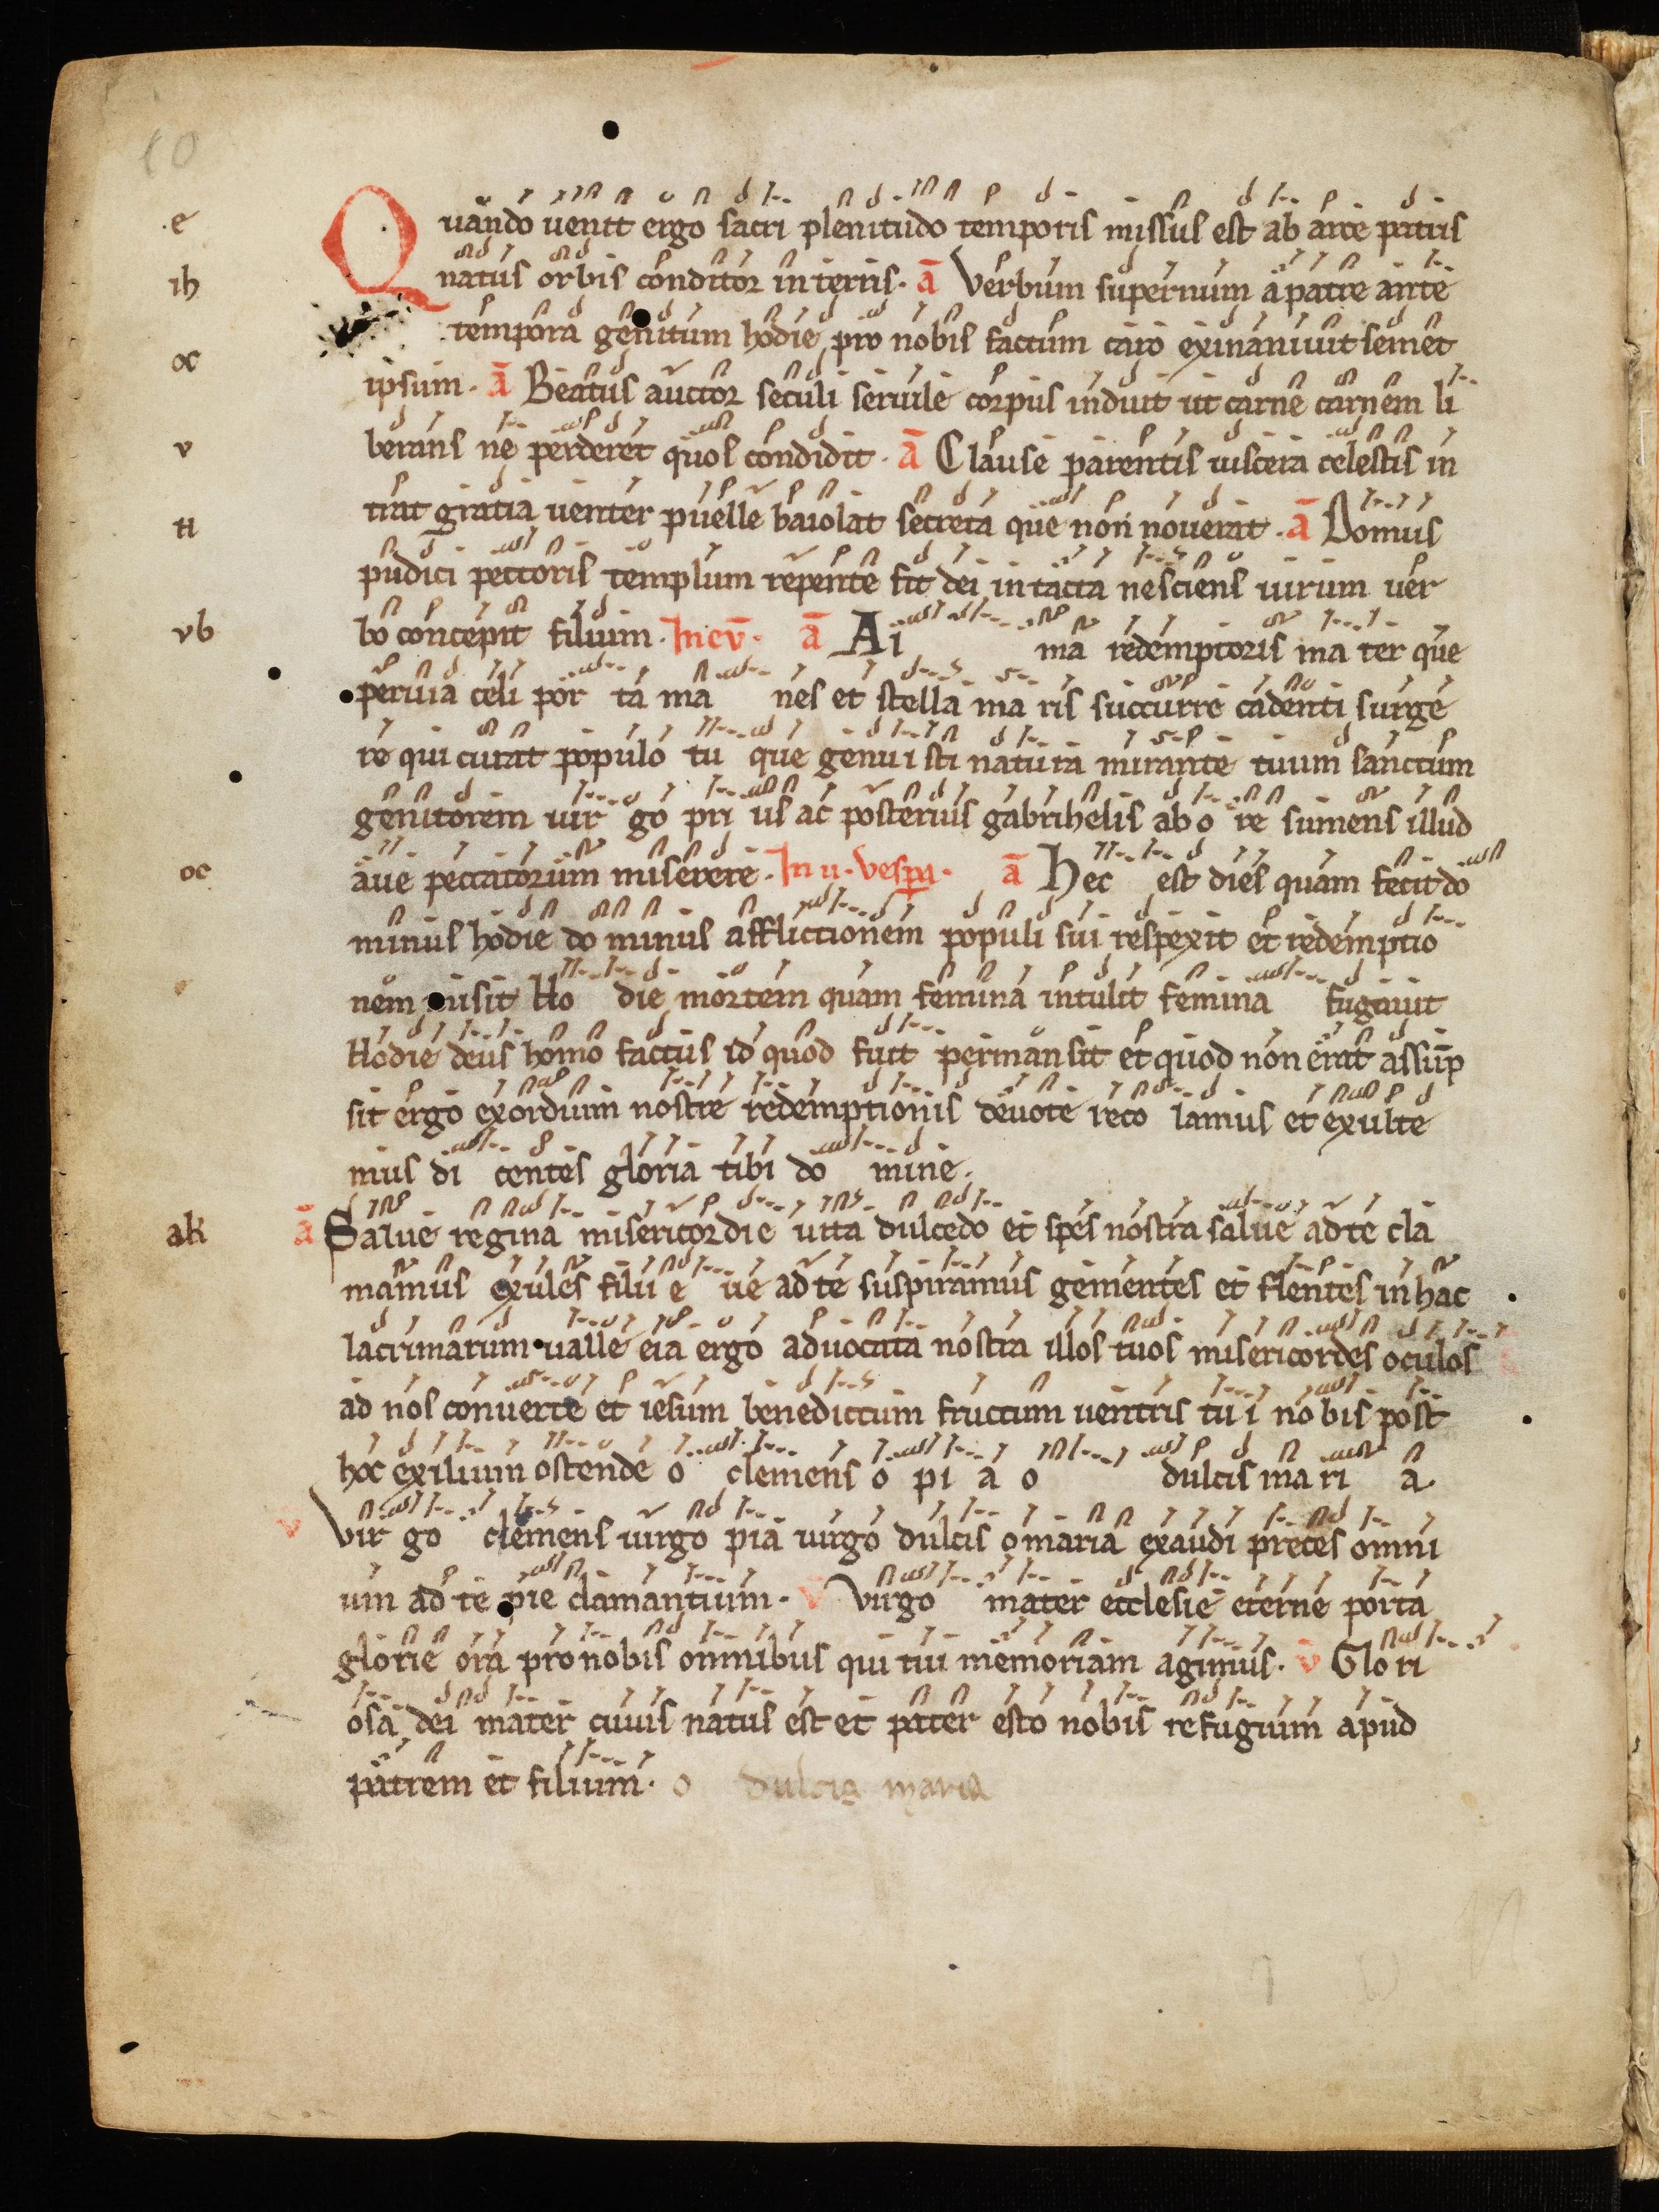 10
e Quando uenit ergo sacri plenitudo temporis missus est ab arce patris
ih natus orbis conditor in terris. ā Verbum supernum a patre ante
tempora genitum hodie pro nobis factum caro exinaniuit semet
oc ipsum. ā Beatus auctor seculi seruile corpus induit ut carne carnem li
v berans ne perderet quos condidit. ā Clause parentis uiscera celestis in
H trat gratia uenter puelle baiolat secreta que non nouerat. ā Domus
pudici pectoris templum repente fit dei intacta nesciens uirum uer
vb bo concepit filium. In eūv. ā Al ma redemptoris ma ter que
peruia celi por ta ma nes et stella ma ris succurre cadenti surge
re qui curat populo tu que genui sti natura mirante tuum sanctum
genitorem uir go pri us ac posterius gabrihelis ab o re sumens illud
oc aue peccatorum miserere. In ii. vespa. ā Hec est dies quam fecit do
minus hodie do minus afflictionem populi sui respexit et redemptio
nem misit Ho die mortem quam femina intulit femina fugauit
Hodie deus homo factus id quod fuit permansit et quod non erat assūp
sit ergo exordium nostre redemptionis deuote reco lamus et exulte
mus di centes gloria tibi do mine.
ak ā Salue regina misericordie uita dulcedo et spes nostra salue ad te cla
mamus exules filii e ue ad te suspiramus gementes et flentes in hac
lacrimarum ualle eia ergo aduocata nostra illos tuos misericordes oculos
ad nos conuerte et iesum benedictum fructum uentris tu i no bis post
hoc exilium ostende o clemens o pi a o dulcis ma ri a.
v Vir go clemens uirgo pia uirgo dulcis o maria exaudi preces omni
um ad te pie clamantium. v Virgo mater ecclesie eterne porta
glorie ora pro nobis omnibus qui tui memoriam agimus. v Glo ri
osa dei mater cuius natus est et pater esto nobis refugium apud
patrem et filium. o dulcis maria